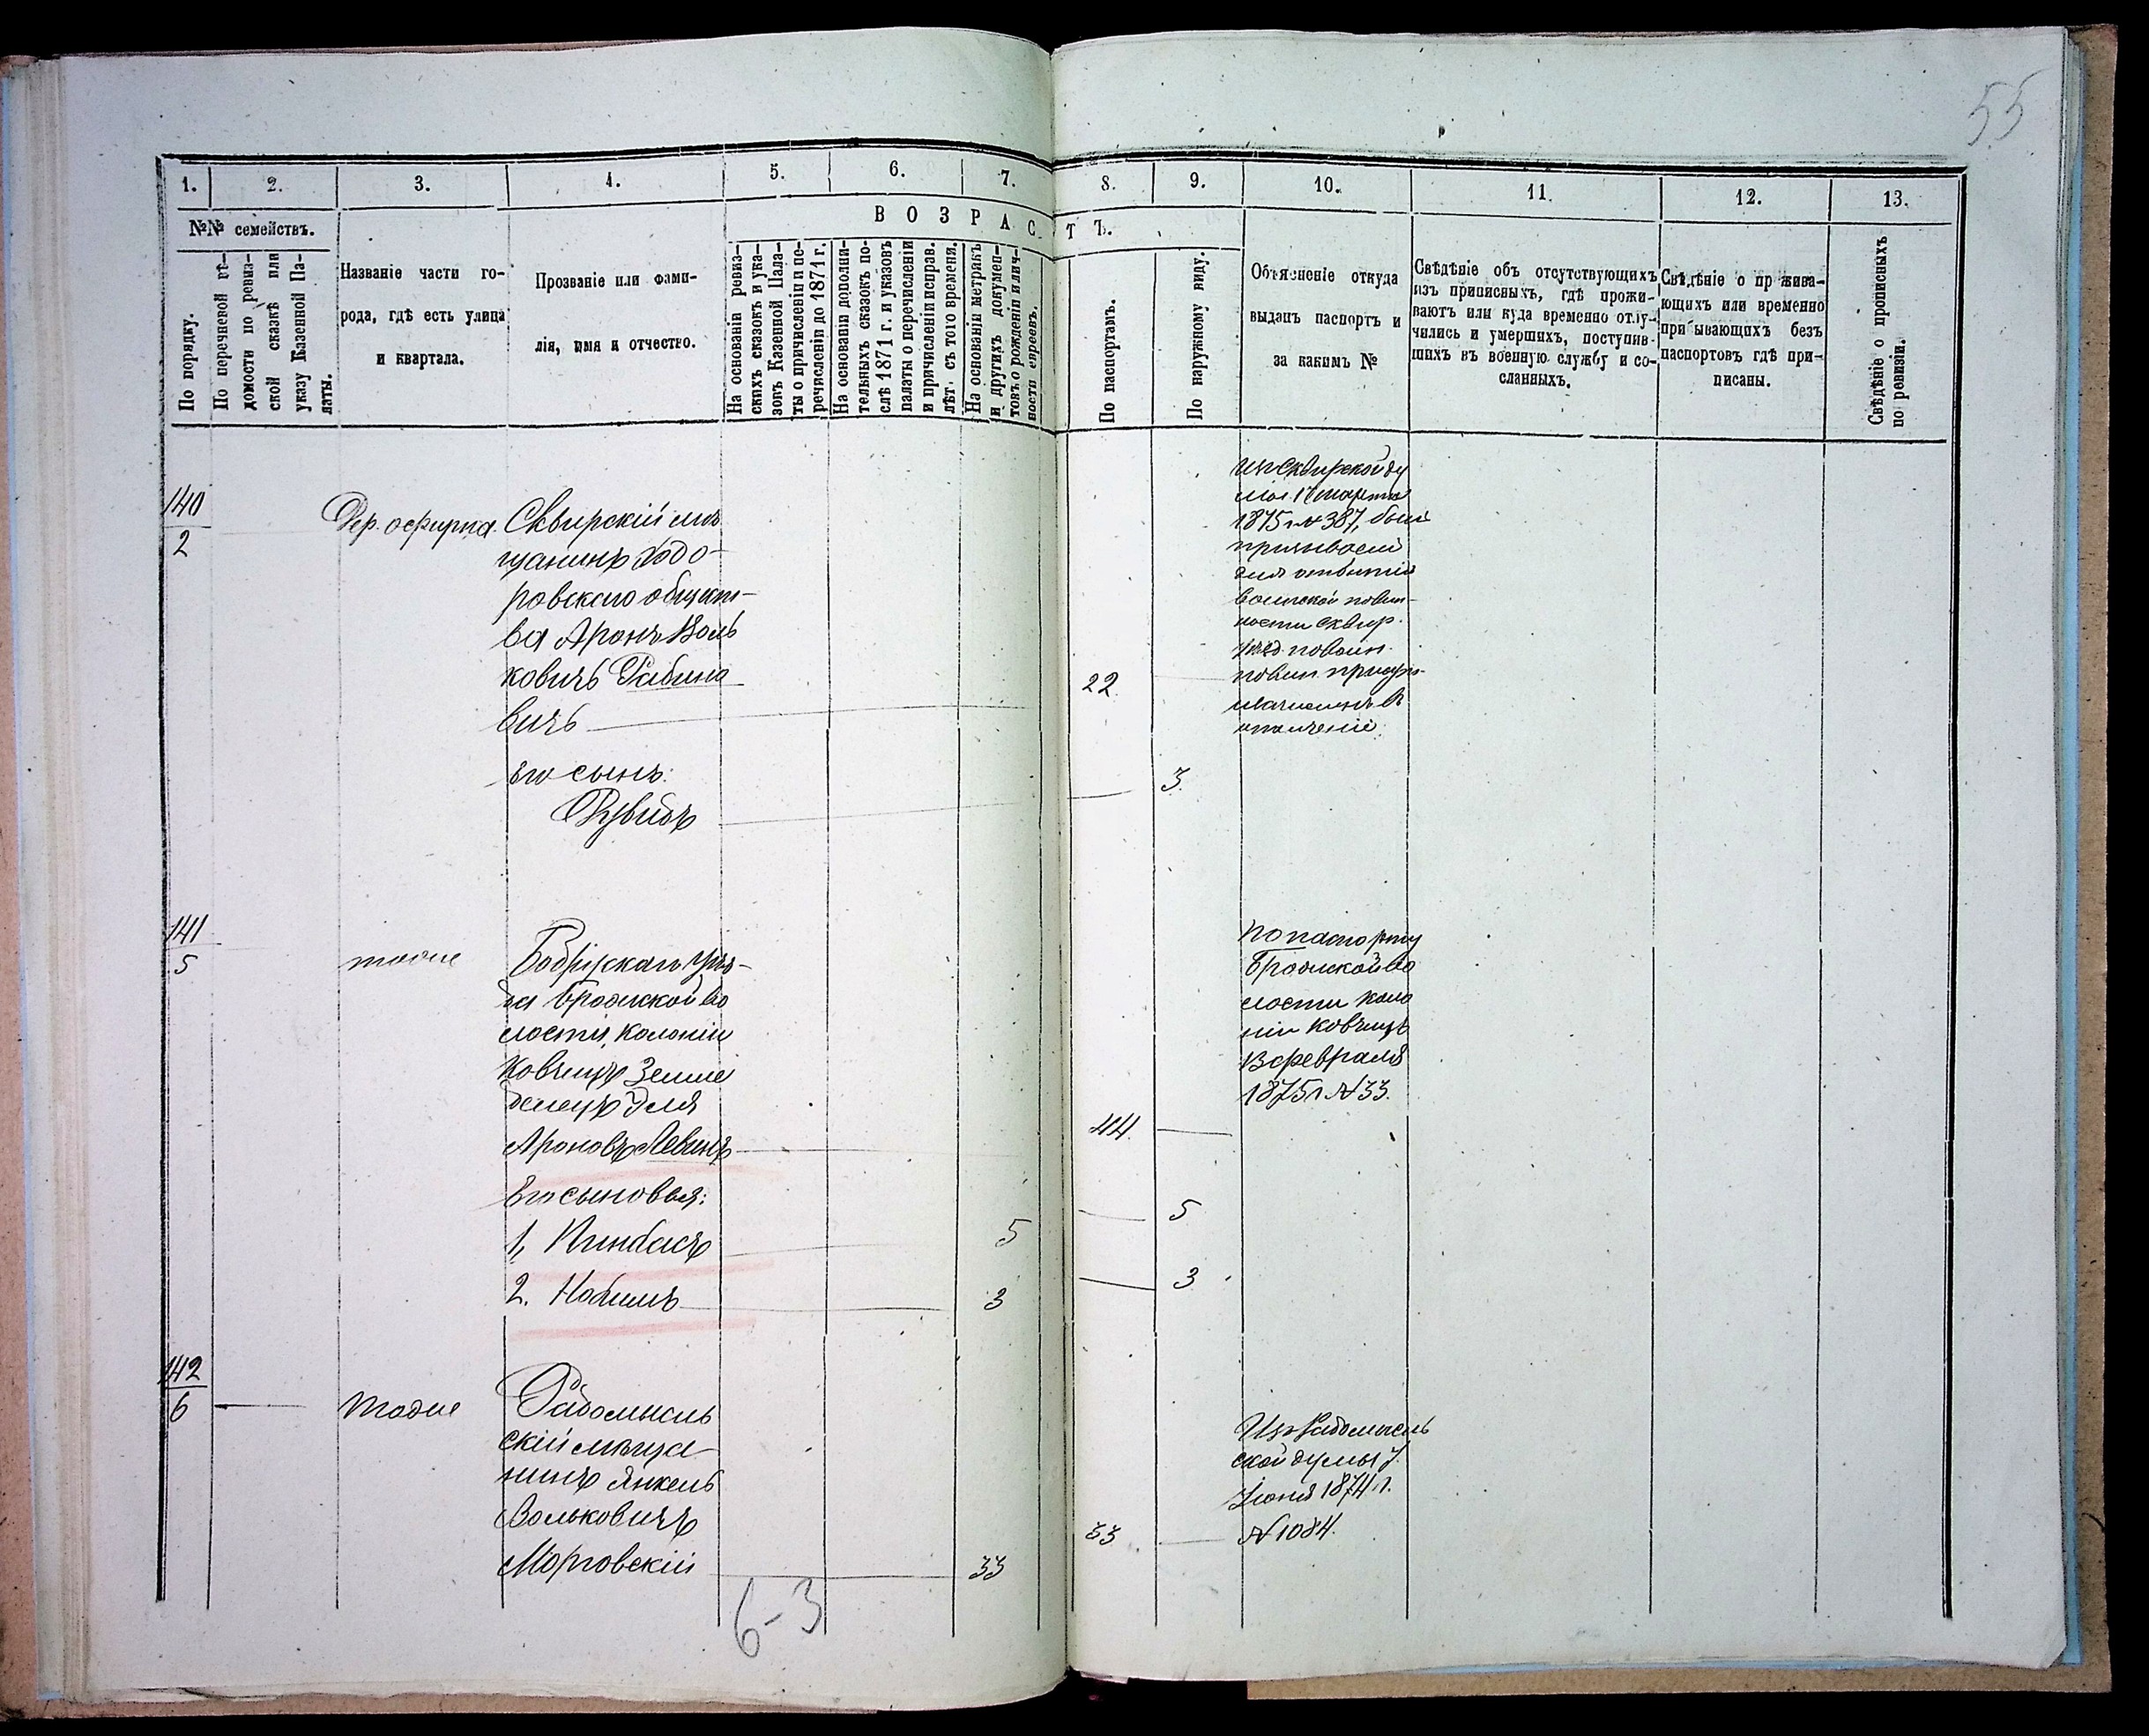 55
1. 2. 3. 4. 5. 6. 7. 8. 9. 10. 11. 12. 13.
№№ семействъ.
В О З Р А С Т Ъ.
По порядку.
По перечневой вѣ-
домости по ревиз-
ской сказкѣ или
указу Казенной Па-
латы.
Названіе части го-
рода, гдѣ есть улица
и квартала.
Прозваніе или фами-
лія, имя и отчество.
На основаніи ревиз-
скихъ сказокъ и ука-
зокъ Казенной Пала-
ты о причисленіи и пе-
речисленіи до 1871 г.
На основаніи дополни-
тельныхъ сказокъ по-
слѣ 1871 г. и указовъ
палаты о перечисленіи
и причисленіи исправ.
лѣт. съ того времени.
На основаніи метрикъ
и другихъ докумен-
товъ о рожденіи и лич-
ности евреевъ.
По паспортамъ.
По наружному виду.
Объясненіе откуда
выданъ паспортъ и
за какимъ №
Свѣдѣніе объ отсутствующихъ
изъ приписныхъ, гдѣ прожи-
ваютъ или куда временно отлу-
чились и умершихъ, поступив-
шихъ въ военную службу и со-
сланныхъ.
Свѣдѣніе о прожива-
ющихъ или временно
прибывающихъ безъ
паспортовъ гдѣ при-
писаны.
Свѣдѣніе о прописныхъ
по ревизіи.
140
2
Дер. офирна.
Сквирскій мѣ
щанинъ Ходо-
ровскаго общест-
ва Аронъ Воль
ковичъ Рабино
вичъ
22
изъ Сквирской ду
мы 17 марта
1875 г № 387, былъ
призываемъ
для отбытія
воинской повин-
ности Сквир.
уѣзд. по воин.
повин. присут.
ополченіе.
Его сынъ:
3.
141
5
тоже
Бобруйскаго уѣз-
да Брожской во
лости, колоніи
Ковчицъ Земле
делецъ Эля
Ароновъ Левинъ
44.
По паспорту
Брожской во
лости коло
ніи Ковчицъ
февраля
1875 г. № 33.
Его сыновья:
1, Пинхасъ
5
5
2. Нохимъ
3
3
142
6
тоже
Радомысль
скій мѣща-
нинъ Янкель
Вольковичъ
Морговскій
33
33
Изъ Радомысль
ской думы 7.
Іюня 1874 г.
№ 1084.
6-3